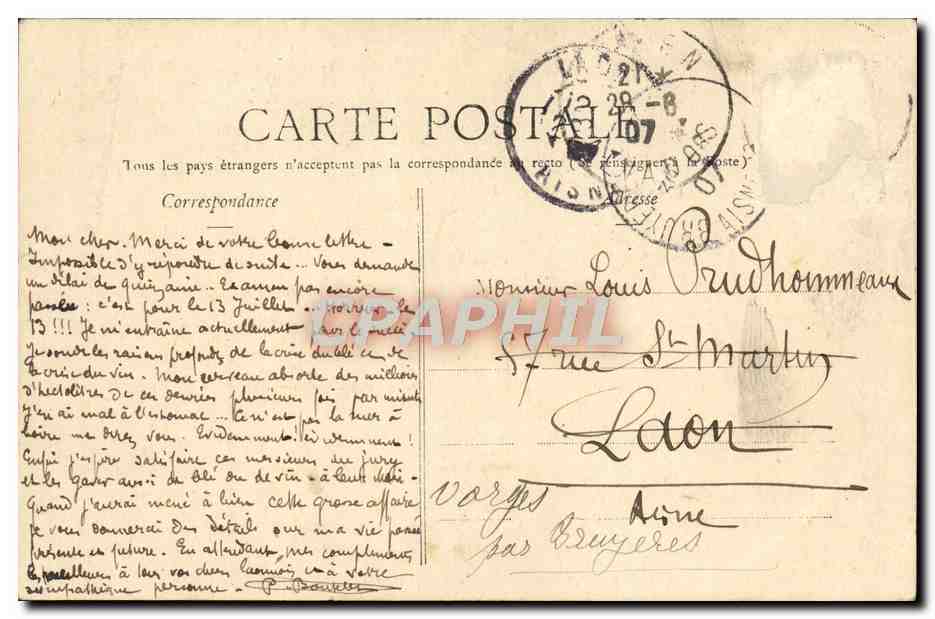 CARTE POSTALE
Tous les pays étrangers n'acceptent pas la correspondance au recto (Se renseigner à la Poste)
Correspondance
Adresse
Mon cher. Merci de votre bonne lettre –
Impossible d'y répondre de suite... Vous demande
un délai de quinzaine.. Examen pas encore
passé : c'est pour le 13 Juillet... le
13 !!! Je m'entraîne actuellement pour
Je sonde les raisons profondes de la crise du blé et de
la crise du vin. Mon cerveau absorbe des milliers
d'hectolitres de ces denrées plusieurs fois par minute
j'en ai mal à l'estomac... Ce n'est pas la mer à
boire me direz vous. Evidemment ! évidemment !
Enfin j'espère satisfaire ces messieurs du jury
et les gaver aussi de blé ou de vin – à leur choix –
Quand j'aurai mené à bien cette grosse affaire
je vous donnerai des détails sur ma vie passée
présente et future. En attendant, mes compliments
les meilleurs à tous vos chers laonnois et à votre
sympathique personne –
Monsieur Louis Prudhommeaux
37 rue St Martin
Laon
Aisne
Vorges
par Bruyères
LAON
28 -6
07
AISNE
CPAPHIL